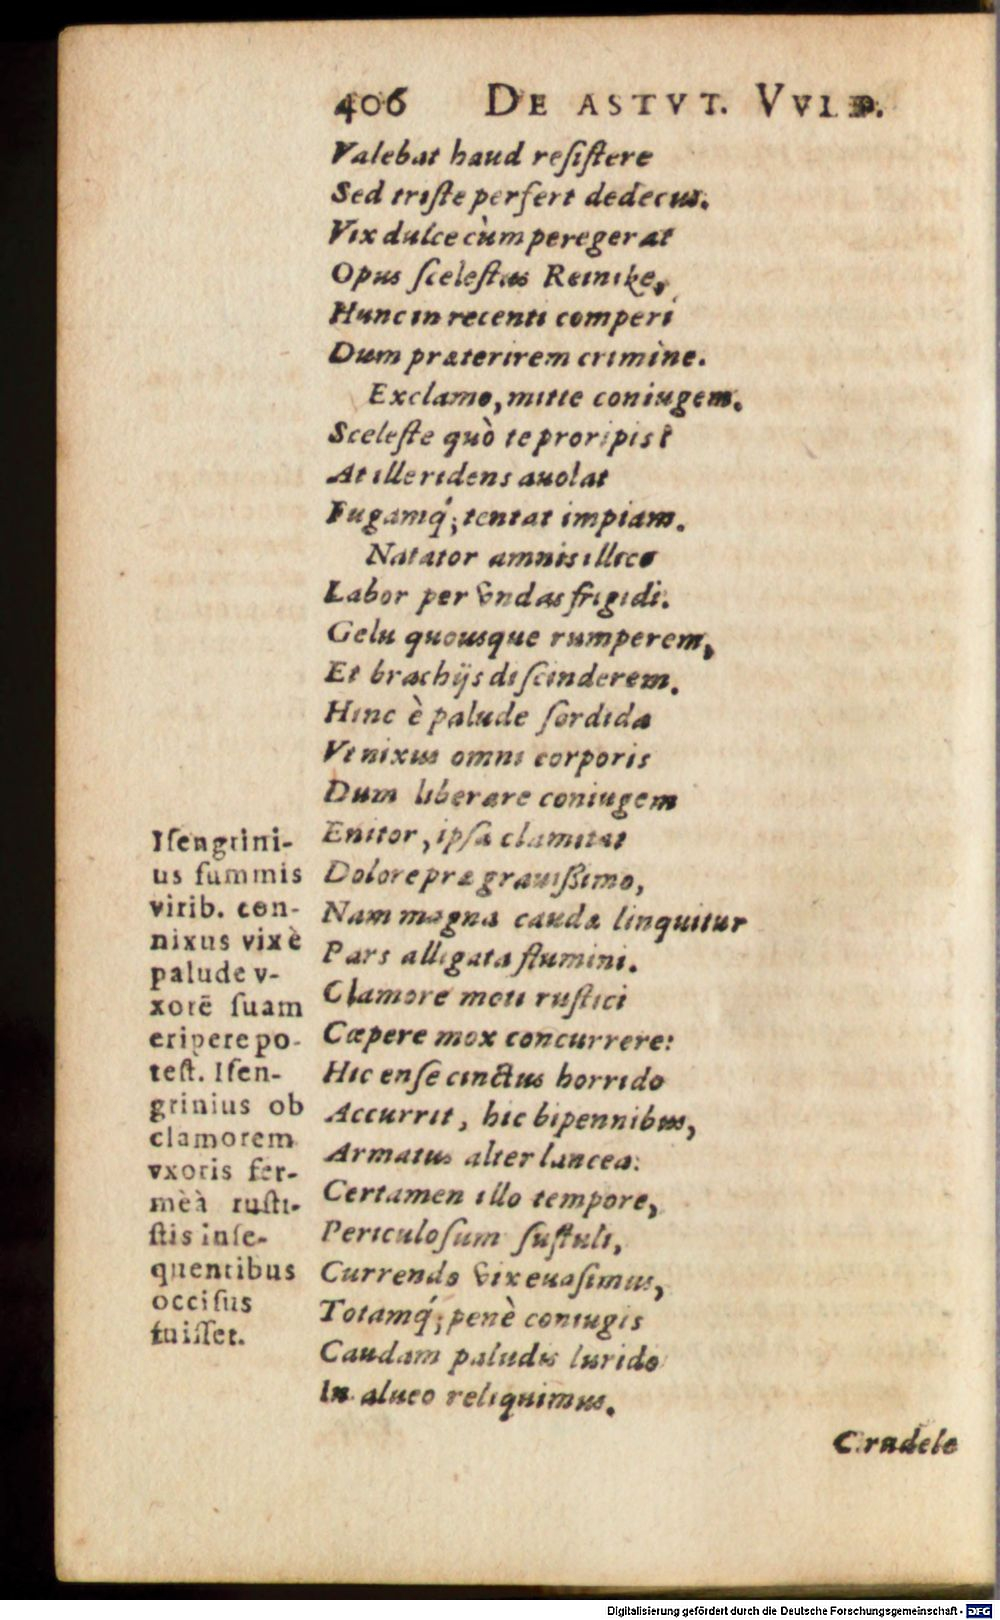 406 DE ASTVT. VVLP.
Valebat haud reſiſtere
Sed triſte perfert dedecus.
Vix dulce cùm peregerat
Opus ſceleſtus Reinike,
Hunc in recenti comperi
Dum præterirem crimine.
Exclamo, mitte coniugem.
Sceleſte quò te proripis?
At ille ridens auolat
Fugamq́; tentat impiam.
Natator amnis illico
Labor per vndas frigidi.
Gelu quousque rumperem,
Et brachijs diſcinderem.
Hinc è palude ſordida
Vt nixus omni corporis
Dum liberare coniugem
Enitor, ipſa clamitat
Dolore præ grauißimo,
Nam magna caudæ linquitur
Pars alligata flumini.
Clamore moti ruſtici
Cœpere mox concurrere:
Hic enſe cinctus horrido
Accurrit, hic bipennibus,
Armatus alter lancea:
Certamen illo tempore,
Periculoſum ſuſtuli,
Currendo vix euaſimus,
Totamq́; penè coniugis
Caudam paludis lurido
In alueo reliquimus.
Iſengrini-
us ſummis
virib. con-
nixus vix è
palude v-
xorē ſuam
eripere po-
teſt. Iſen-
grinius ob
clamorem
vxoris fer-
mè à ruſti-
ſtis inſe-
quentibus
occiſus
fuiſſet.
Crudele
Digitalisierung gefördert durch die Deutsche Forschungsgemeinschaft - DFG